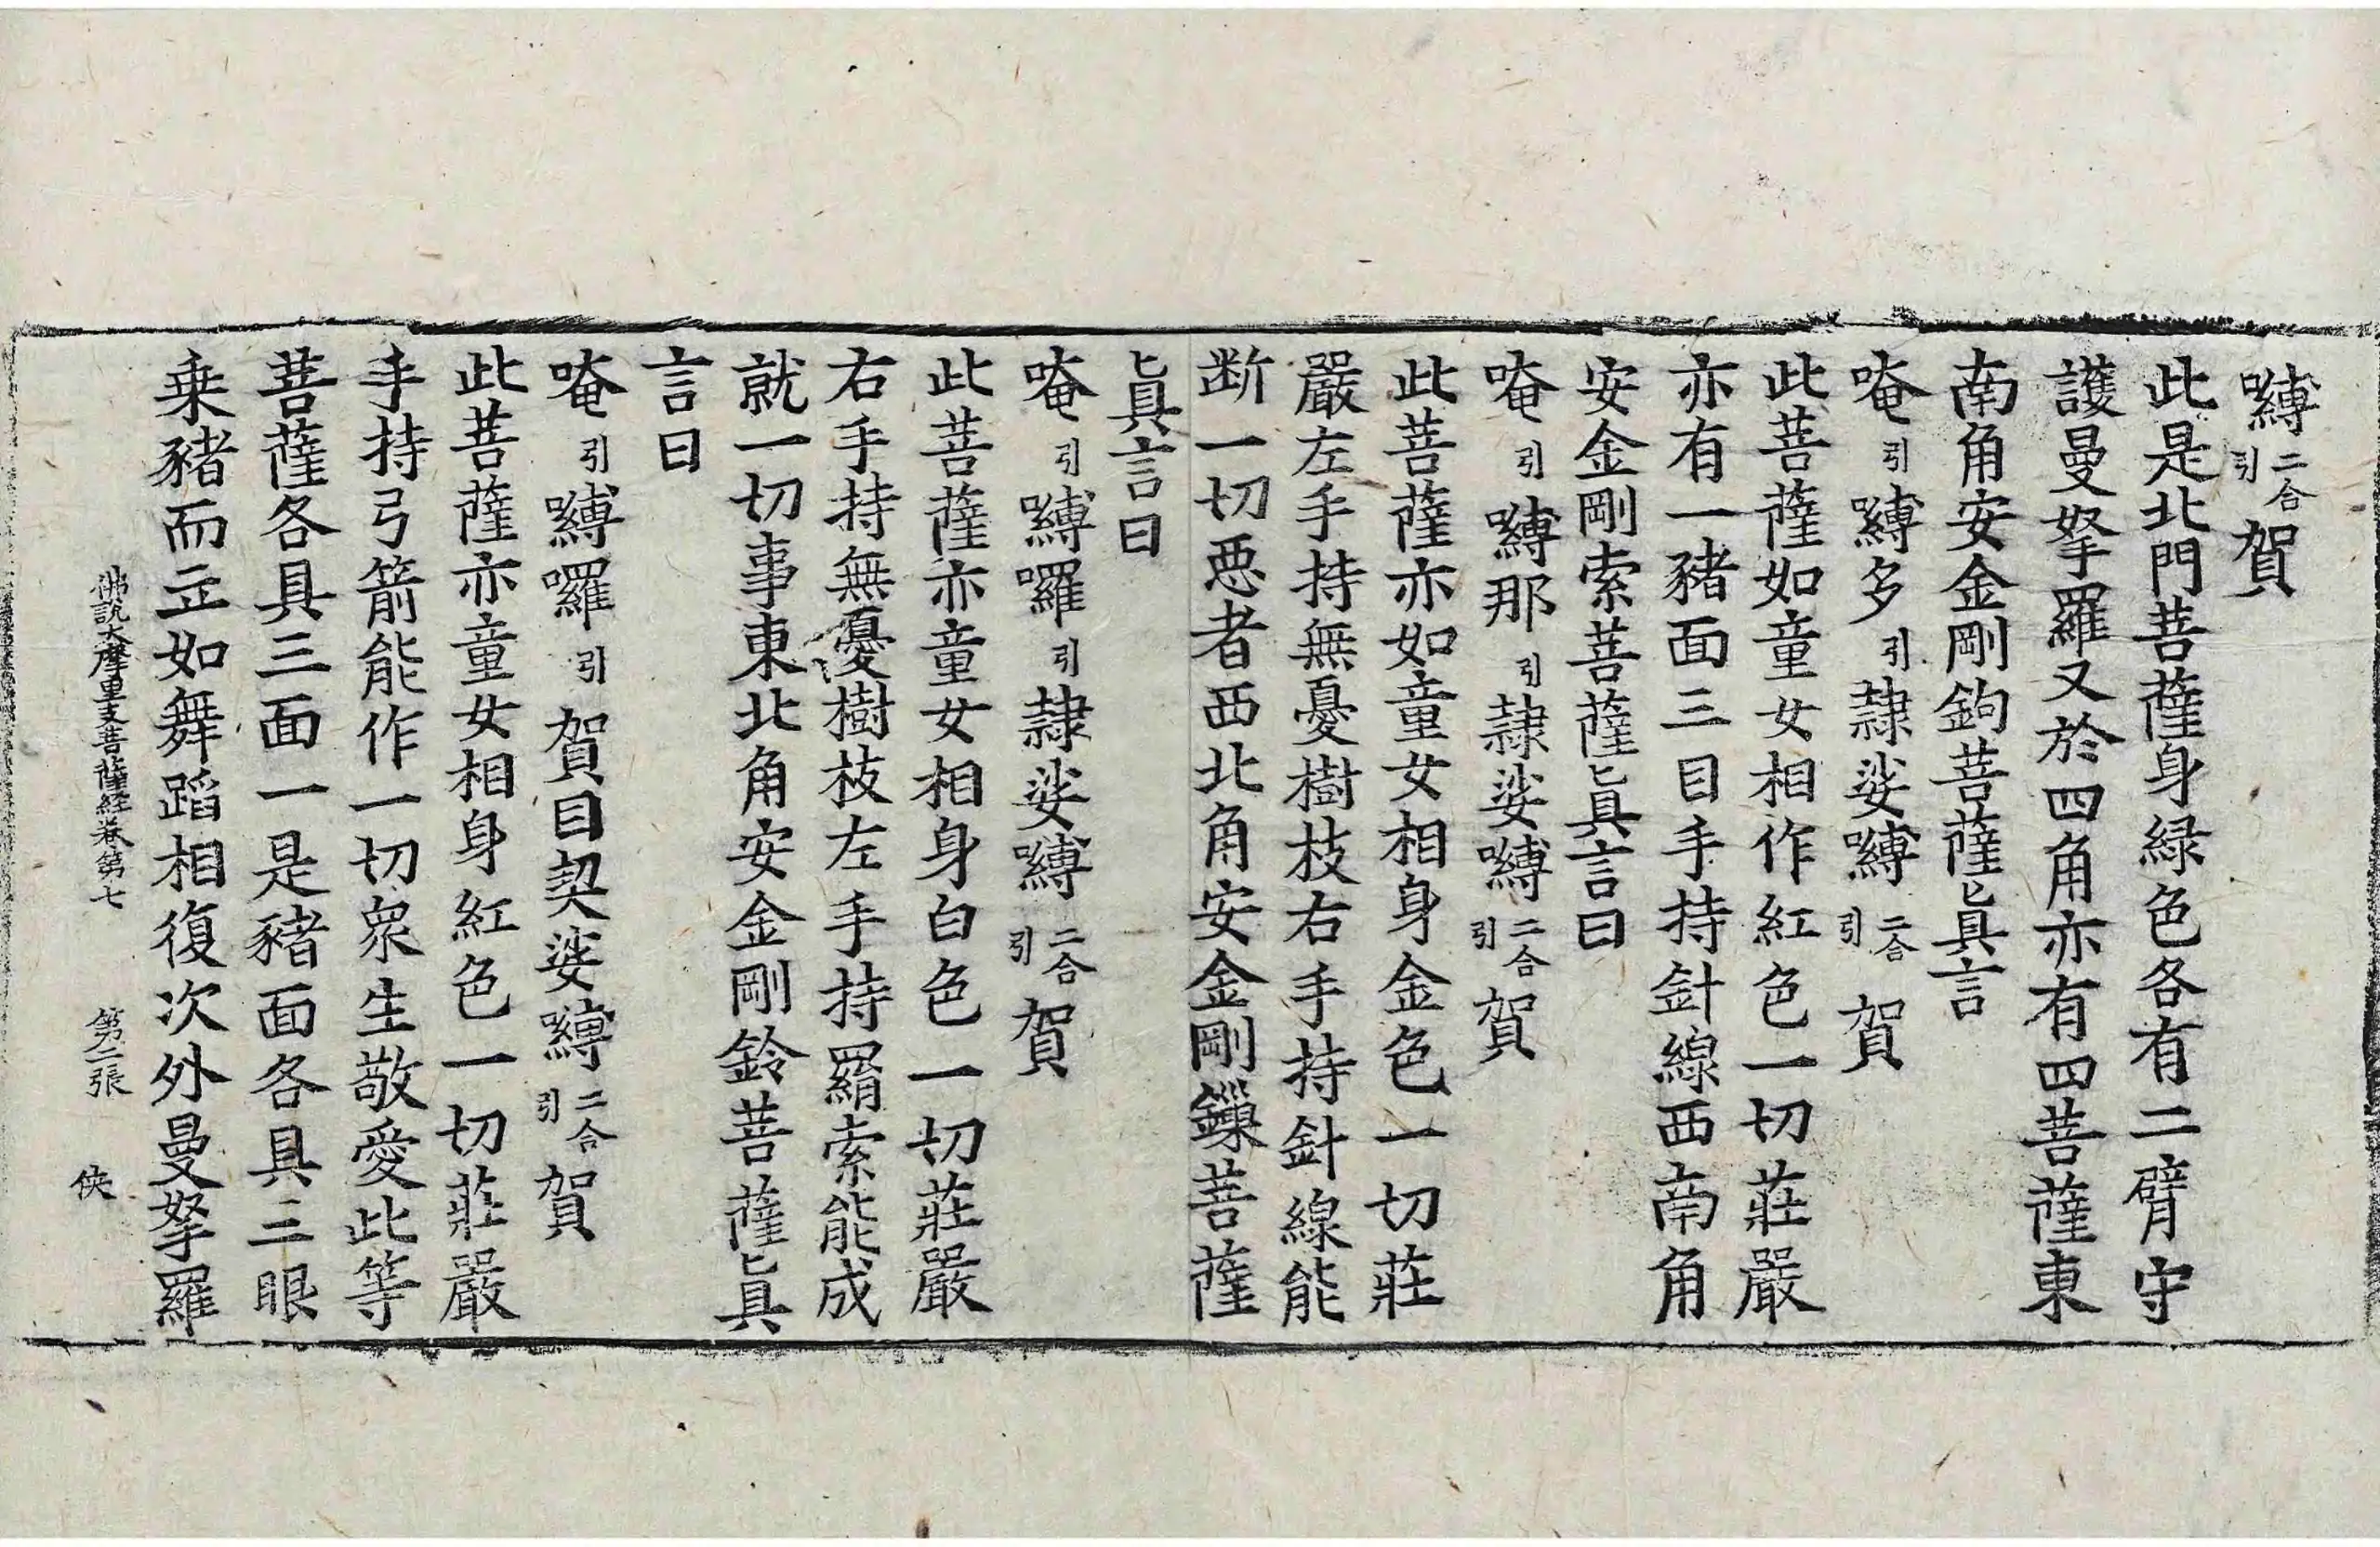 嚩二合引賀
此是北門菩薩身緑色各有二臂守
護曼拏羅又於四角亦有四菩薩東
南角安金剛鉤菩薩眞言
唵引嚩多引隷娑嚩二合引賀
此菩薩如童女相作紅色一切莊嚴
亦有一豬面三目手持針線西南角
安金剛索菩薩眞言曰
唵引嚩那引隷娑嚩二合引賀
此菩薩亦如童女相身金色一切莊
嚴左手持無憂樹枝右手持針線能
断一切悪者西北角安金剛鏁菩薩
眞言曰
唵引嚩囉引隷娑嚩二合引賀
此菩薩亦童女相身白色一切莊嚴
右手持無憂樹枝左手持羂索能成
就一切事東北角安金剛鈴菩薩眞
言曰
唵引嚩囉引賀目契娑嚩二合引賀
此菩薩亦童女相身紅色一切莊嚴
手持弓箭能作一切衆生敬愛此等
菩薩各具三面一是豬面各具三眼
乗豬而立如舞蹈相復次外曼拏羅
佛說大摩里支菩薩經卷第七 第二張 俠